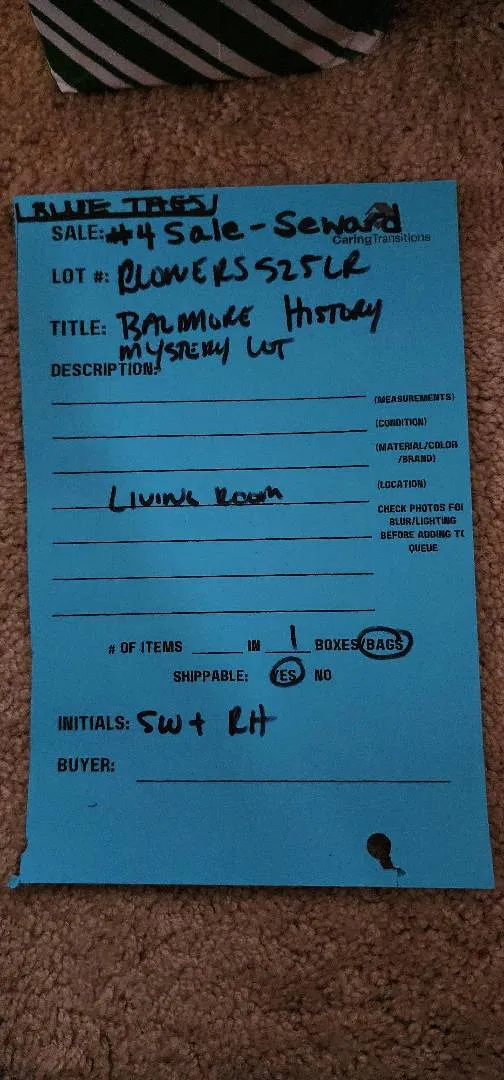 BLUE TAGS
SALE: #4 Sale - Seward
CaringTransitions
LOT #: PLOWERS525LR
TITLE: BALMMORE HISTORY
MYSTERY LOT
DESCRIPTION:
(MEASUREMENTS)
(CONDITION)
(MATERIAL/COLOR
/BRAND)
LIVING ROOM
(LOCATION)
CHECK PHOTOS FOR
BLUR/LIGHTING
BEFORE ADDING TO
QUEUE
# OF ITEMS ____ IN 1 BOXES/BAGS
SHIPPABLE: YES NO
INITIALS: SW + RH
BUYER: